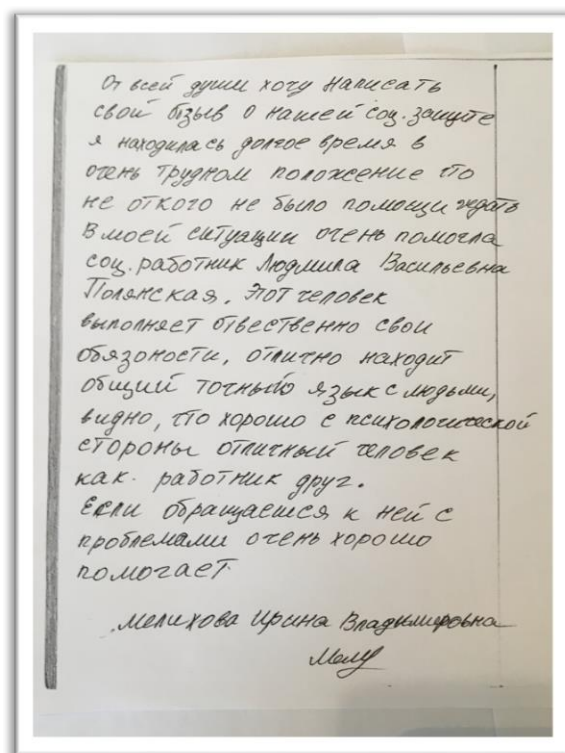 От всей души хочу написать
свой отзыв о нашей соц. защите
я находилась долгое время в
очень трудном положение что
не откого не было помощи ждать
В моей ситуации очень помогла
соц. работник Людмила Васильевна
Полянская. Этот человек
выполняет отвественно свои
обязоности, отлично находит
общий точный язык с людьми,
видно, что хорошо с психологической
стороны отличный человек
как. работник друг.
Если обращаешся к ней с
проблемами очень хорошо
помогает.
Мелихова Ирина Владимировна